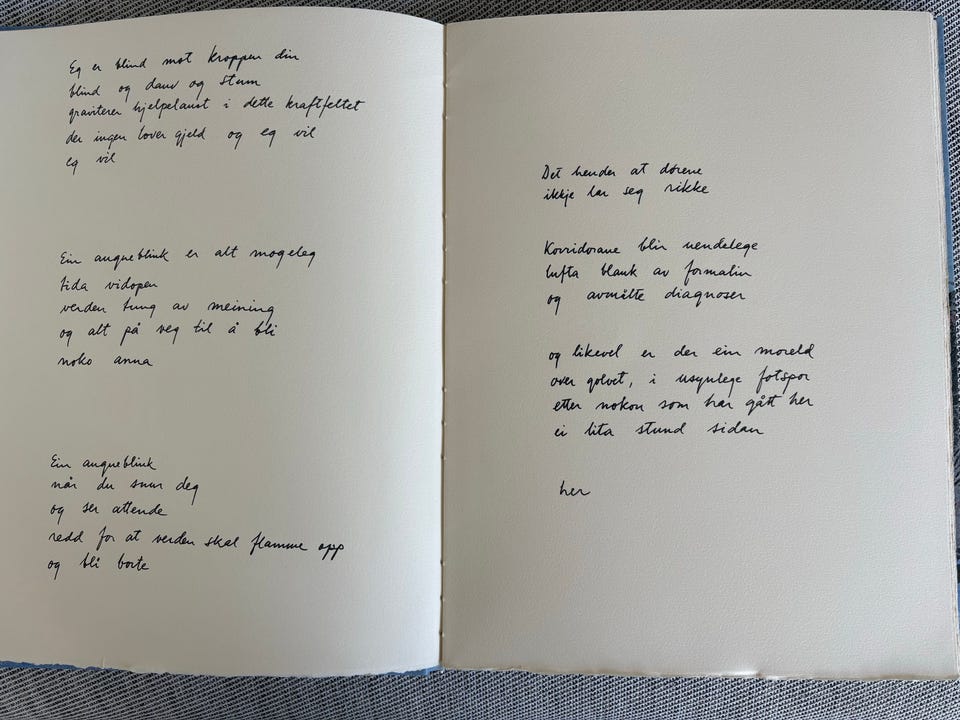 Eg er blind mot kroppen din
blind og dauv og stum
graviterer hjelpelaust i dette kraftfeltet
der ingen lover gjeld og eg vil
eg vil
Ein augneblink er alt mogeleg
tida vidopen
verden tung av meining
og alt på veg til å bli
noko anna
Ein augneblink
når du snur deg
og ser attende
redd for at verden skal flamme opp
og bli borte
Det hender at dørene
ikkje lar seg rikke
Korridorane blir uendelege
lufta blank av formalin
og avmålte diagnoser
og likevel er der ein moreld
over golvet, i usynlege fotspor
etter nokon som har gått her
ei lita stund sidan
her